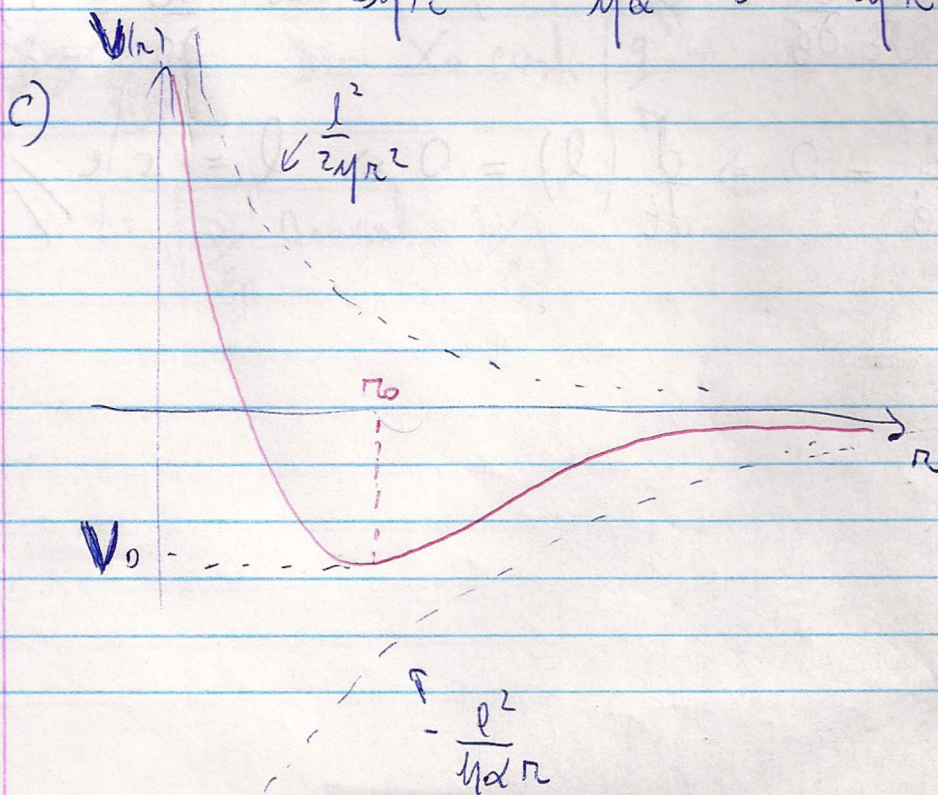 V(r)
c)
l²/2μr²
r₀
r
V₀
- l²/μαr